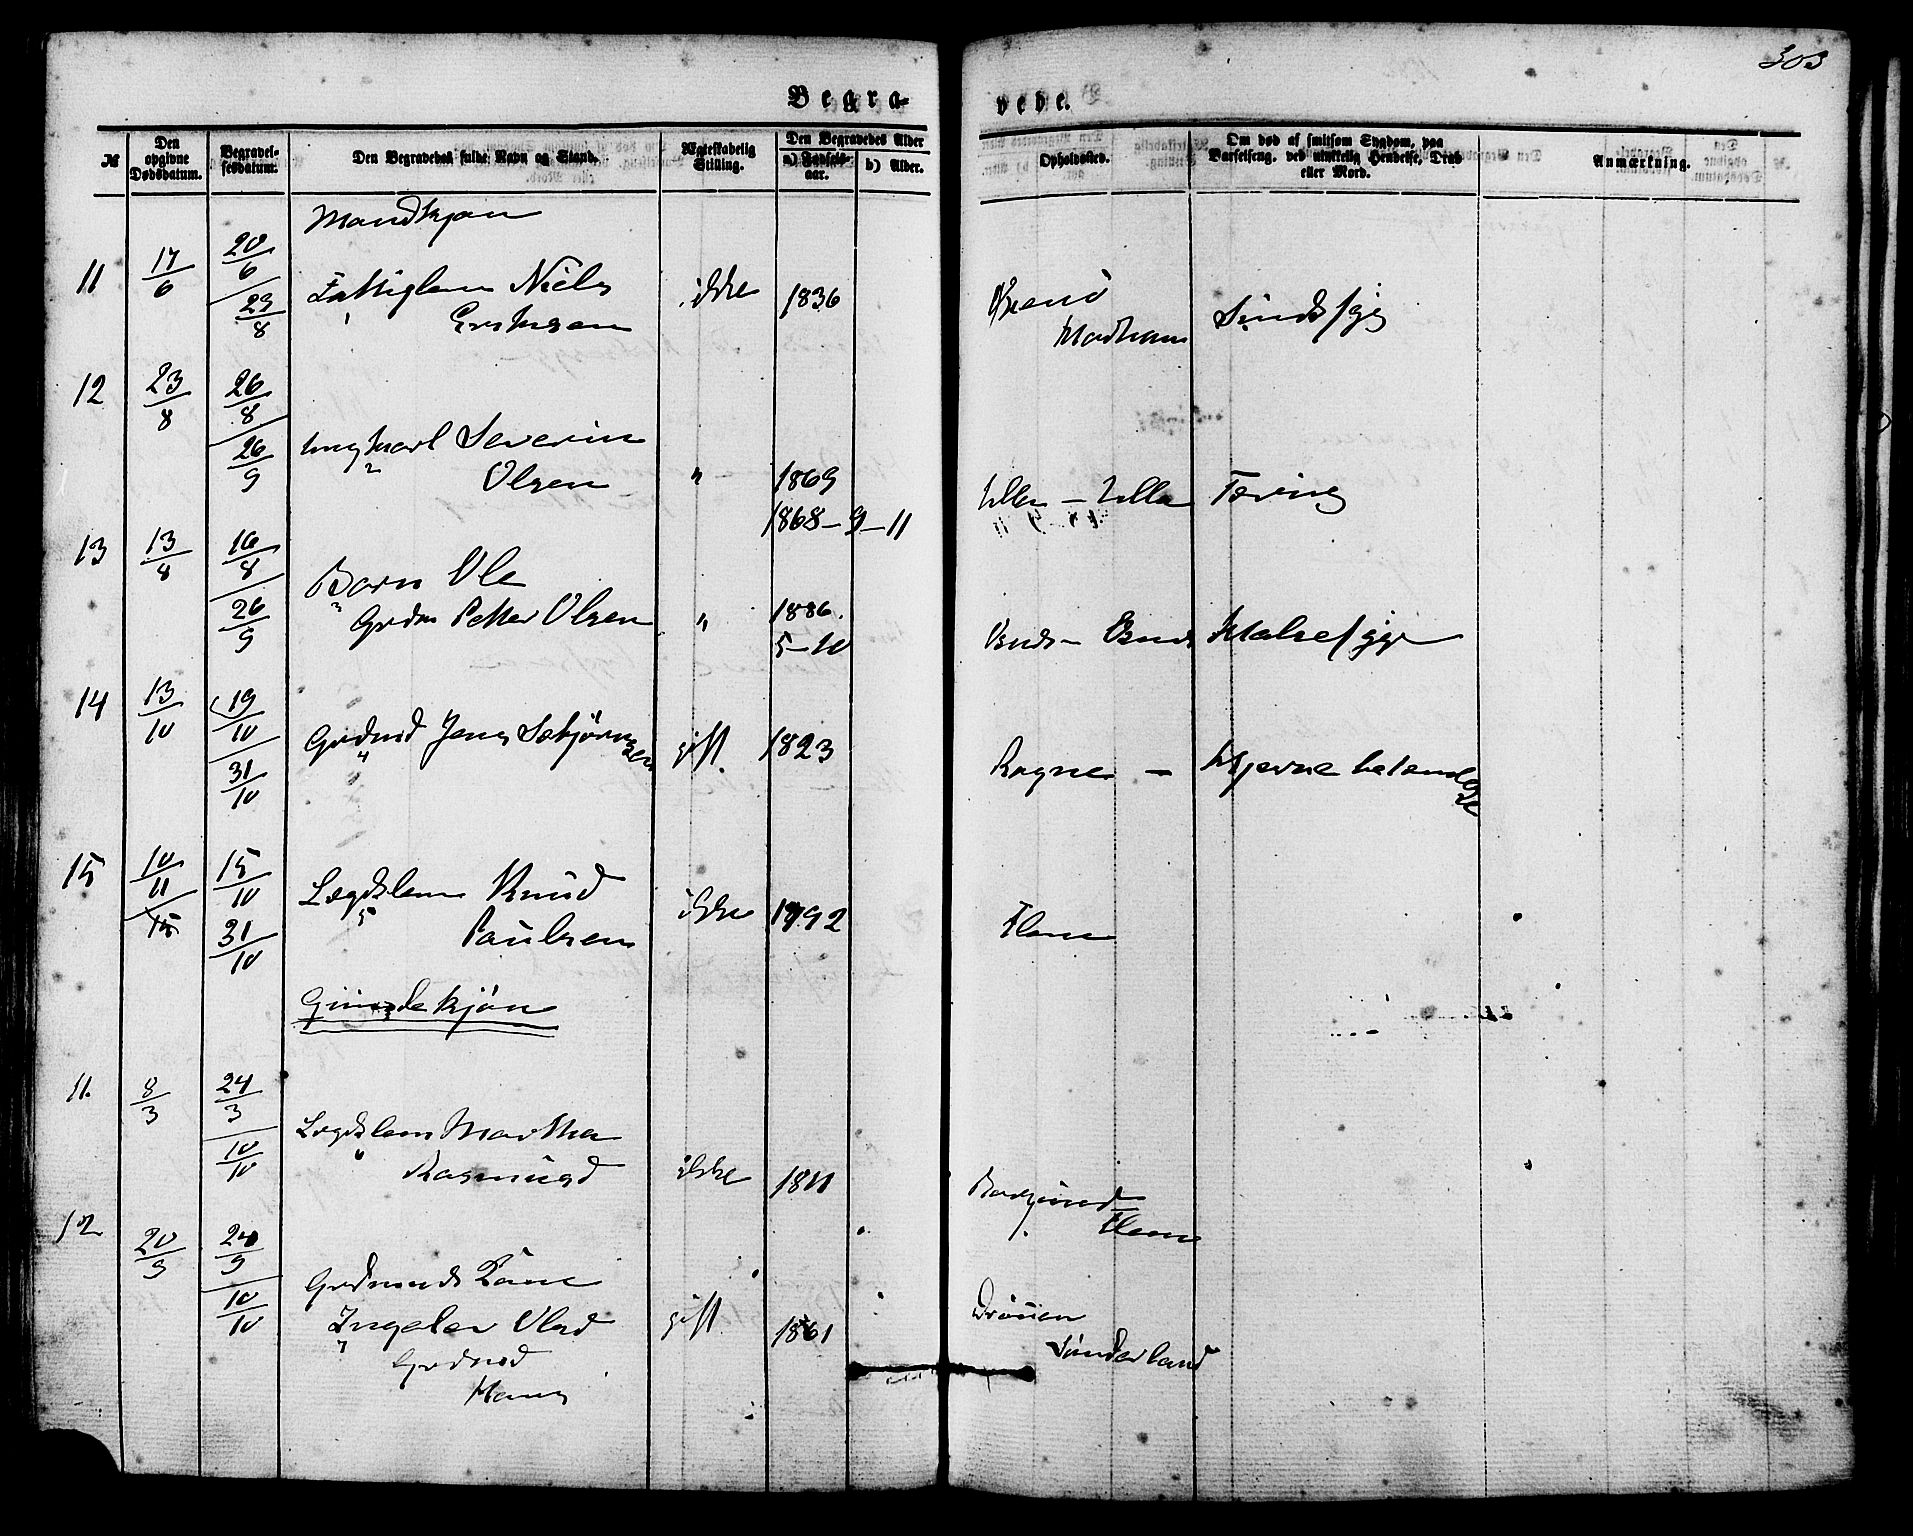 303
Begra-
vede.
№
Den opgivne Dødsdatum.
Begravel-
sesdatum.
Den Begravedes fulde Navn og Stand.
Ægteskabelig Stilling.
Den Begravedes Alder
a) Fødsels-
aar.
b) Alder.
Opholdssted.
Om død af smitsom Sygdom, paa
Barselseng, ved ulykkelig Hendelse, Drab
eller Mord.
Anmærkning.
Mandkjøn
11 17/6 20/6 23/8 Fattiglem Niels ikke 1836 Sindssyg
12 23/8 26/8 26/9 Ungkarl Severin
Olsen " 1869 Ulla – Ulla Tæring
1868–9–11
13 13/8 16/8 26/9 Barn Ole
Grdm Petter Olsen " 1886. Halssyge
5–10
14 13/10 19/10 31/10 Grdmd Jens Sebjørnsen gift. 1823 Rogne – Hjernebetændelse
15 10/11 15/10 31/10 Lægdslem Knud
Paulsen ikke 1792 Flem
Qvindekjøn
11. 8/3 24/3 10/10 Lægdslem Martha
Rasmusd ikke 1811 Borgund
Flem
12 20/9 24/9 10/10 Grdmands Kone
Ingelev Olsd gift. 1861
Grdmd
Hans
Sønderland